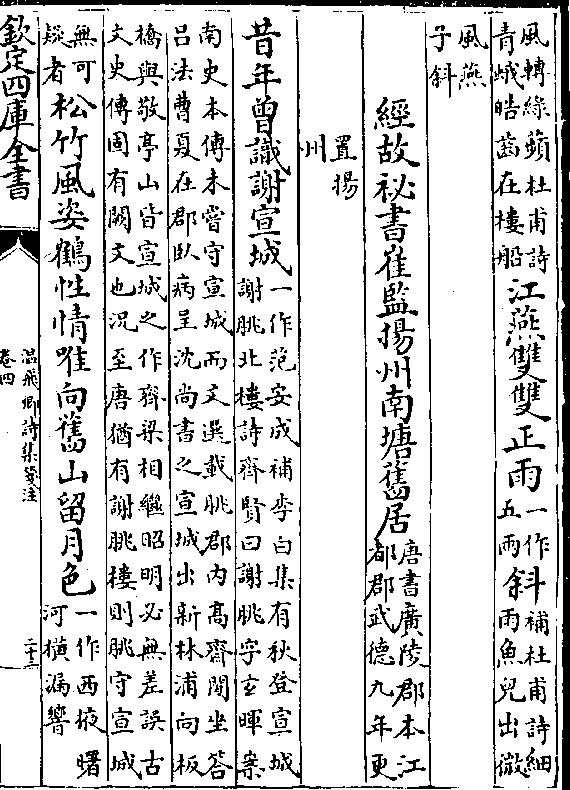 風轉綠蘋杜甫詩
青蛾皓齒在樓船
江燕雙雙正雨
一作
五雨
斜
補杜甫詩細
雨魚兒出微
風燕
子斜
經故祕書崔監揚州南塘舊居
唐書廣陵郡本江
都郡武德九年更
置揚
州
昔年曾識謝宣城
一作范安成補李白集有秋登宣城
謝朓北樓詩齊賢曰謝朓字玄暉案
南史本傳未嘗守宣城而文選載朓郡內高齋閒坐答
呂法曹夏在郡臥病呈沈尚書之宣城出新林浦向板
橋與敬亭山皆宣城之作齊梁相繼昭明必無差誤古
文史傳固有闕文也況至唐猶有謝朓樓則朓守宣城
無可
疑者
松竹風姿鶴性情唯向舊山留月色
一作西掖曙
河橫漏響
欽定四庫全書
溫飛卿詩集箋注
卷四
二十三